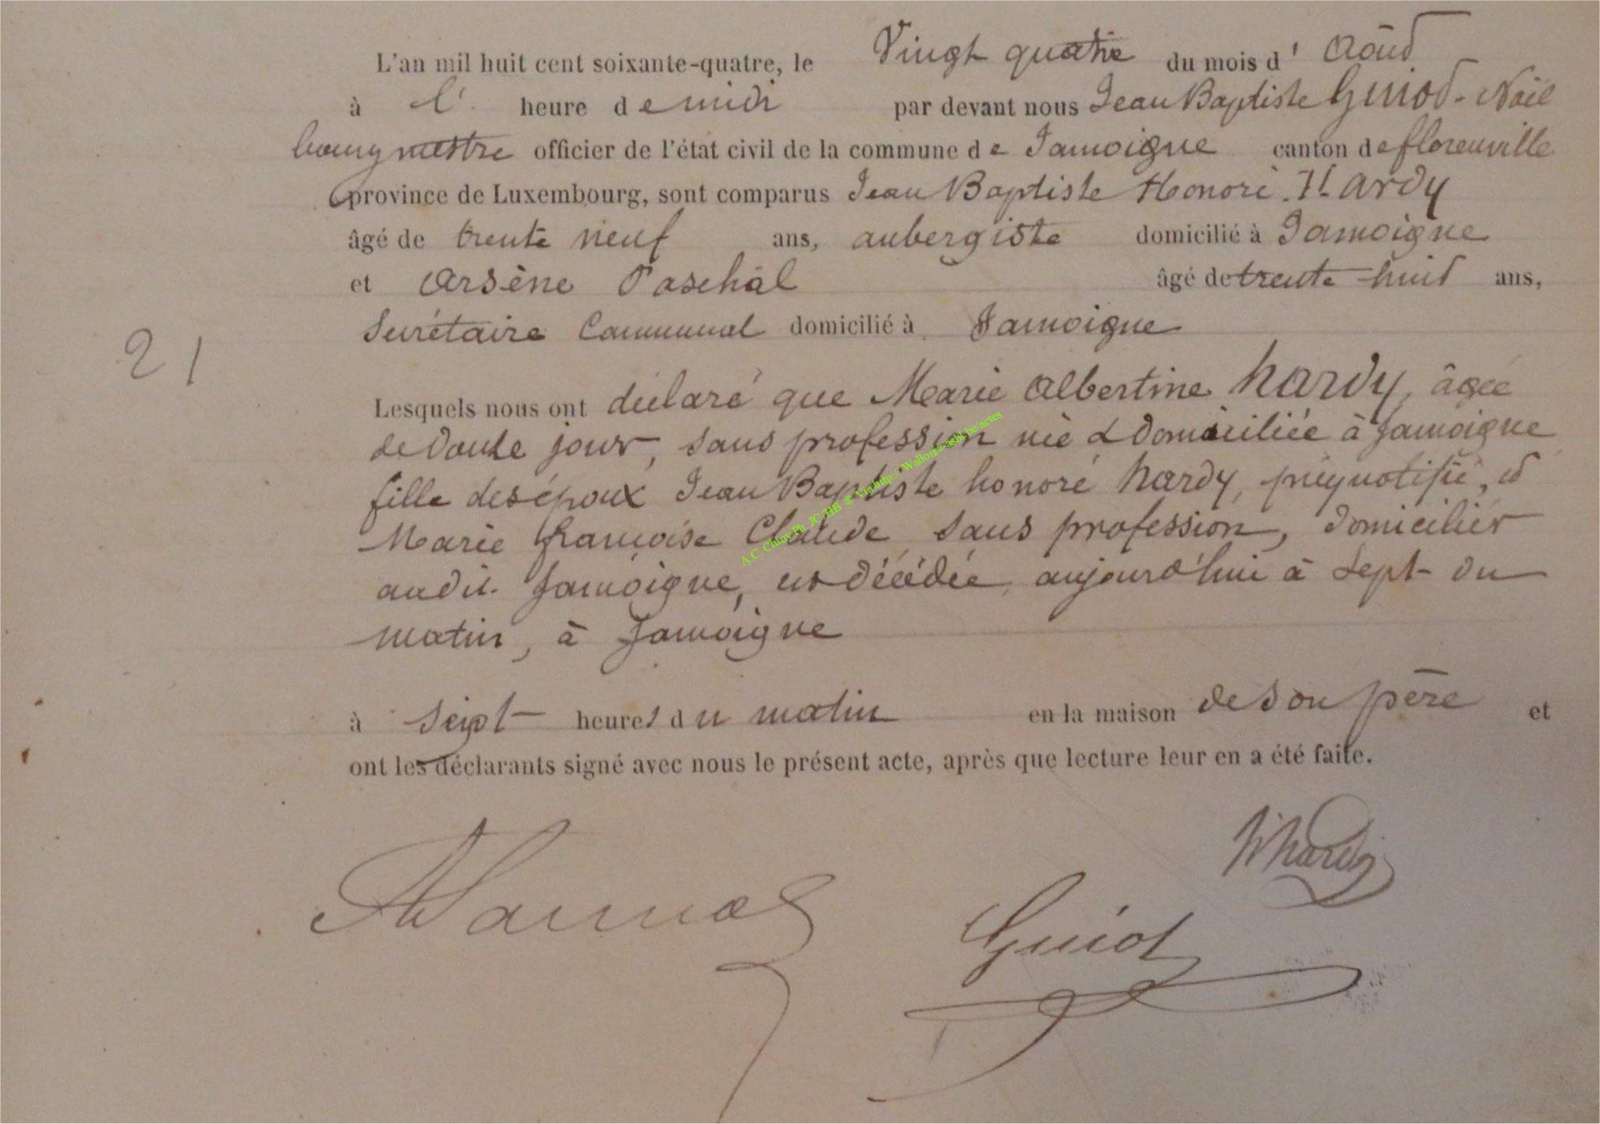 L'an mil huit cent soixante-quatre, le Vingt quatre du mois d' Août
à l' heure de midi par devant nous Jean Baptiste Guiot-Noël
bourgmestre officier de l'état civil de la commune de Jamoigne canton de florenville
province de Luxembourg, sont comparus Jean Baptiste Honoré Hardy
âgé de trente neuf ans, aubergiste domicilié à Jamoigne
et Arsène Paschal âgé de trente huit ans,
Secrétaire Communal domicilié à Jamoigne
21
Lesquels nous ont déclaré que Marie Albertine hardy, âgée
de douze jour, sans profession née & domiciliée à Jamoigne
fille des époux Jean Baptiste honoré hardy, prégnotifié, et
Marie françoise Claude sans profession, domiciliés
audit Jamoigne, est décédée aujourd'hui à Sept du
matin, à Jamoigne
à sept heures du matin en la maison de son père et
ont les déclarants signé avec nous le présent acte, après que lecture leur en a été faite.
hardy
Guiot